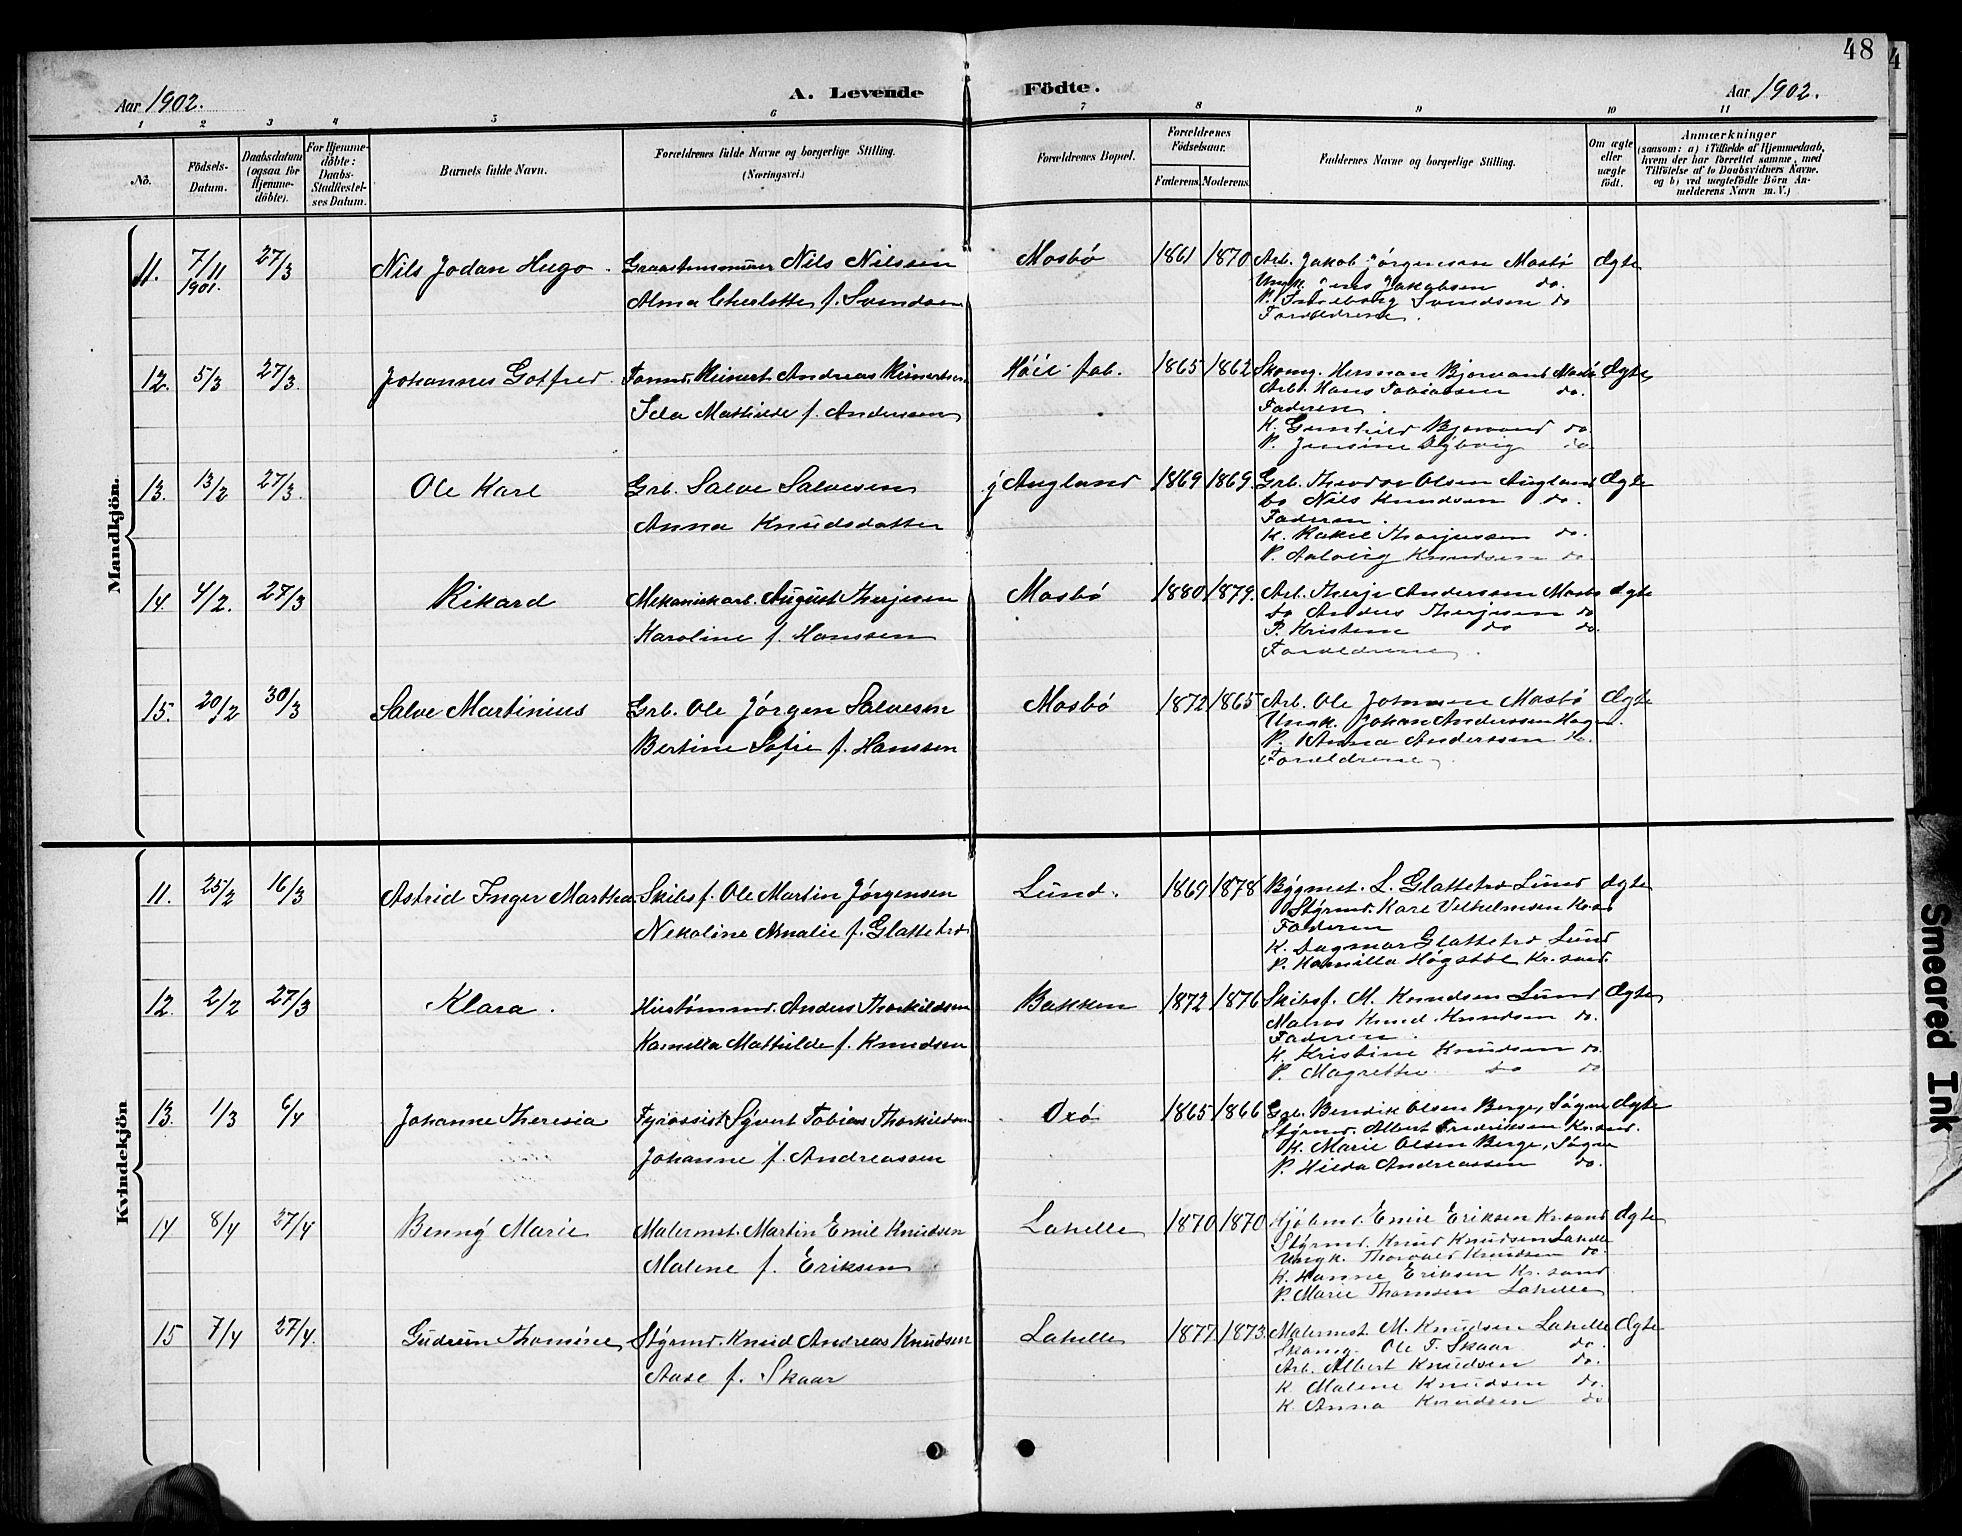 48
Aar 1902.
A. Levende Födte.
Aar 1902.
1 2 3 4 5 6 7 8 9 10 11
No.
Födsels-Datum.
Daabsdatum (ogsaa for Hjemmedöbte).
For Hjemmedöbte: Daabs-Stadfæstelses Datum.
Barnets fulde Navn.
Forældrenes fulde Navne og borgerlige Stilling.
(Næringsvei.)
Forældrenes Bopæl.
Forældrenes Födselsaar.
Faderens. Moderens.
Faddernes Navne og borgerlige Stilling.
Om ægte eller uægte födt.
Anmærkninger
(saasom: a) i Tilfælde af Hjemmedaab, hvem der har forrettet samme, med Tilföielse af to Daabsvidners Navne. og b) ved uægtefödte Börn Anmelderens Navn m. V.)
Mandkjön.
11. 7/11 1901. 27/3 Nils Jodan Hugo. Graastensmurer Nils Nilssen Mosbö 1861 1870 Arb. Jakob Jörgensen Mosbö Ægte
Alma Charlotte f. Svendsen Ungk. Jens Jakobsen do.
P. Ingeborg Svendsen do
Forældrene.
12. 5/3 27/3. Johannes Gotfred. Formd. Reinert Andreas Reinertsen Höie fab. 1865 1862 Skomg. Herman Bjorvand Mosbö Ægte
Ida Mathilde f. Anderssen Arb. Hans Tobiassen do.
Faderen.
K. Gunhild Bjorvand do
P. Jensine Dybvig do
13. 13/2 27/3. Ole Karl Grb. Salve Salvesen Augland 1869 1869. Grb. Theodor Olsen Augland Ægte
Anna Knudsdatter do Nils Knudsen do.
Faderen.
K. Rakel Thorjussen do.
P. Aalvig Knudsen do
14. 4/2. 27/3 Rikard Mekanickarb. August Therjesen Mosbö 1880 1879. Arb. Therje Anderssen Mosbö Ægte
Karoline f. Hanssen do Anders Therjesen do
P. Kristine do do.
Forældrene.
15. 20/2 30/3 Salve Martinius Grb. Ole Jörgen Salvesen Mosbö 1872 1865 Arb. Ole Johnsen Mosbö Ægte
Bertine Sofie f. Hanssen Ungk. Johan Anderssen Hagen.
P. Anna Anderssen do.
Forældrene.
Kvindekjön
11. 25/2 16/3 Astrid Inger Marthea Skibsf. Ole Martin Jörgensen Lund. 1869 1878 Bygmst. L. Glattetre Lund Ægte
Nekoline Amalie f. Glattetre Styrmd. Karl Vilhelmsen Kr.sd
Faderen
K. Dagmar Glattetre Lund
P. Kamilla Högstöl Kr.sand.
12. 2/2 27/3 Klara. Anders Thorkildsen Bakken 1872 1876 Skibsf. M. Knudsen Lund Ægte
Kamilla Mathilde f. Knudsen Matros Knud Knudsen do.
Faderen.
K. Kristine Knudsen do.
P. Magrethe do do
13. 1/3 6/4 Johanne Theresia Fyrassist Syvert Tobias Thorkildsen Oxö 1865 1866 Grb. Bendik Olsen Berge, Sögne Ægte
Johanne f. Andreassen Styrmd. Albert Fredriksen Kr.sand.
K. Marie Olsen Berge, Sögne
P. Hilda Andreassen do.
14 8/4 27/4 Benny Marie Malermst. Martin Emil Knudsen Lahelle 1870 1870 Emil Eriksen Kr.sand Ægte
Malene f. Eriksen Styrmd. Knud Knudsen Lahelle
Ungk. Thorvald Knudsen do.
K. Hanne Eriksen Kr.sand
P. Marie Thomsen Lahelle
15 7/4 27/4. Gudrun Thomine Styrmd. Knud Andreas Knudsen Lahelle 1877 1873. Malermst. M. Knudsen Lahelle Ægte
Aase f. Skaar Skomg. Ole T. Skaar do.
Arb. Albert Knudsen do.
K. Malene Knudsen do.
K. Anna Knudsen do
Smeared Ink